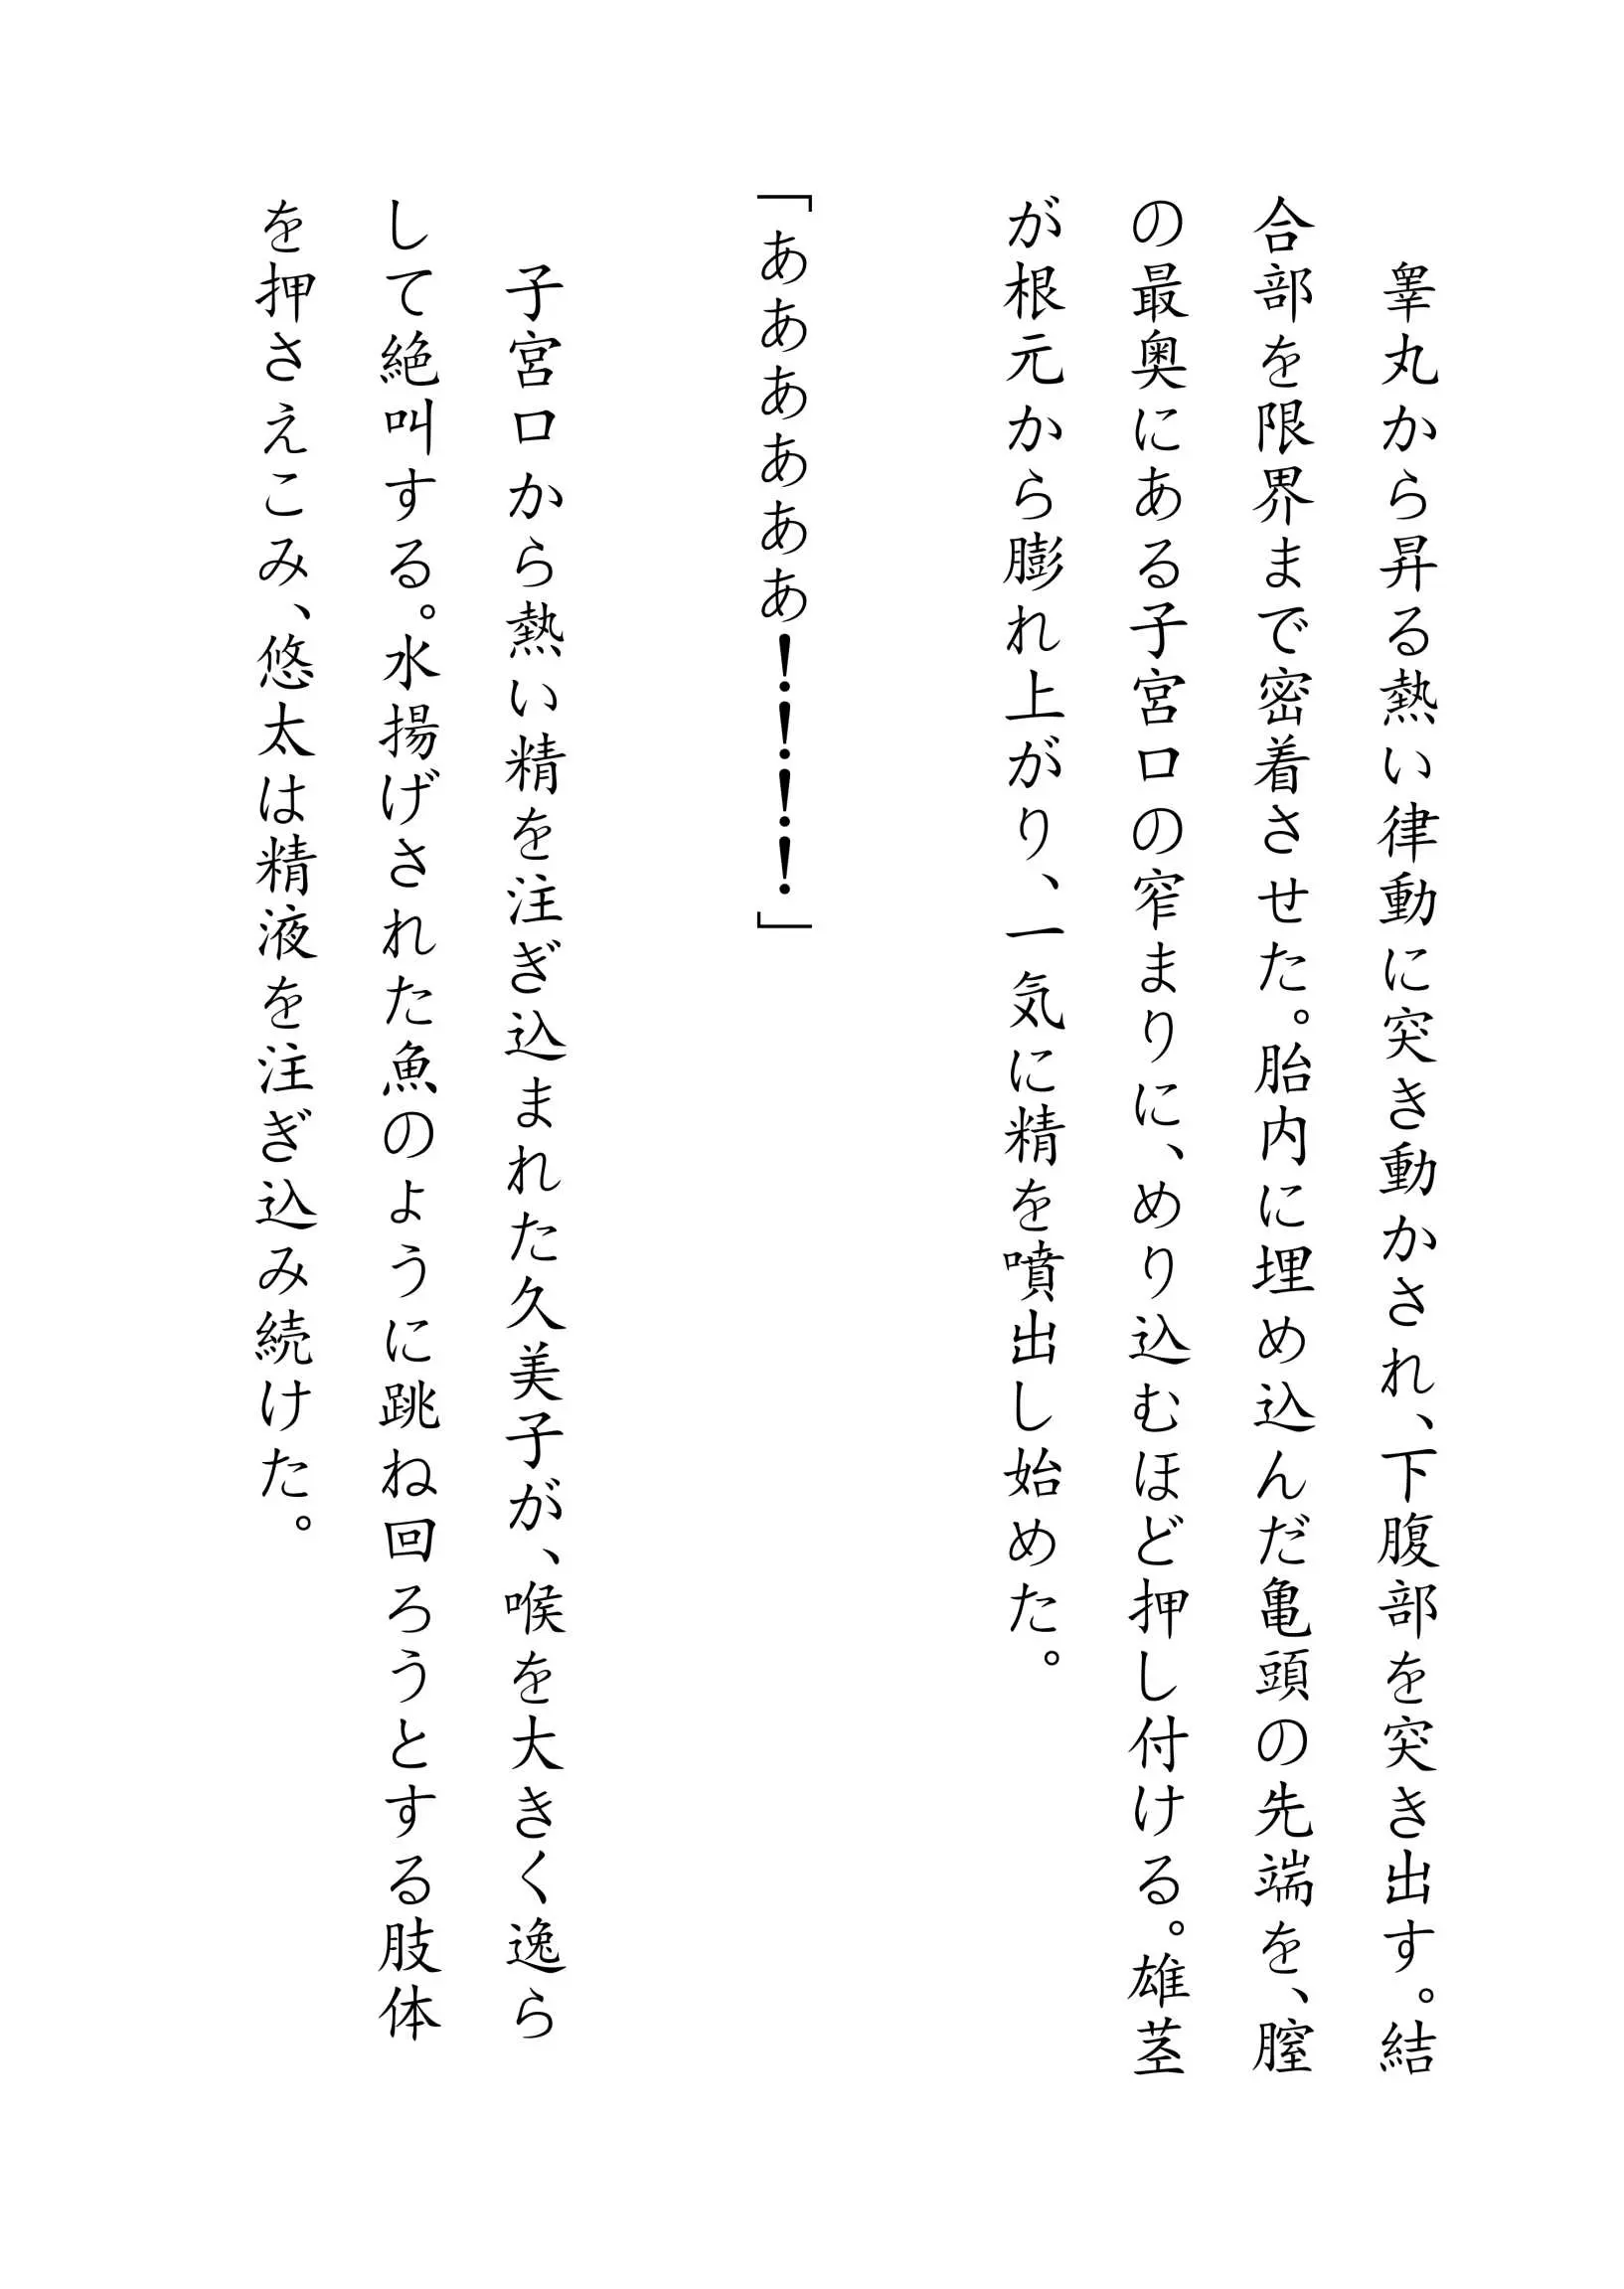 睾丸から昇る熱い律動に突き動かされ、下腹部を突き出す。結
合部を限界まで密着させた。胎内に埋め込んだ亀頭の先端を、膣
の最奥にある子宮口の窄まりに、めり込むほど押し付ける。雄茎
が根元から膨れ上がり、一気に精を噴出し始めた。
「ああああああ！！！！」
子宮口から熱い精を注ぎ込まれた久美子が、喉を大きく逸ら
して絶叫する。水揚げされた魚のように跳ね回ろうとする肢体
を押さえこみ、悠太は精液を注ぎ込み続けた。